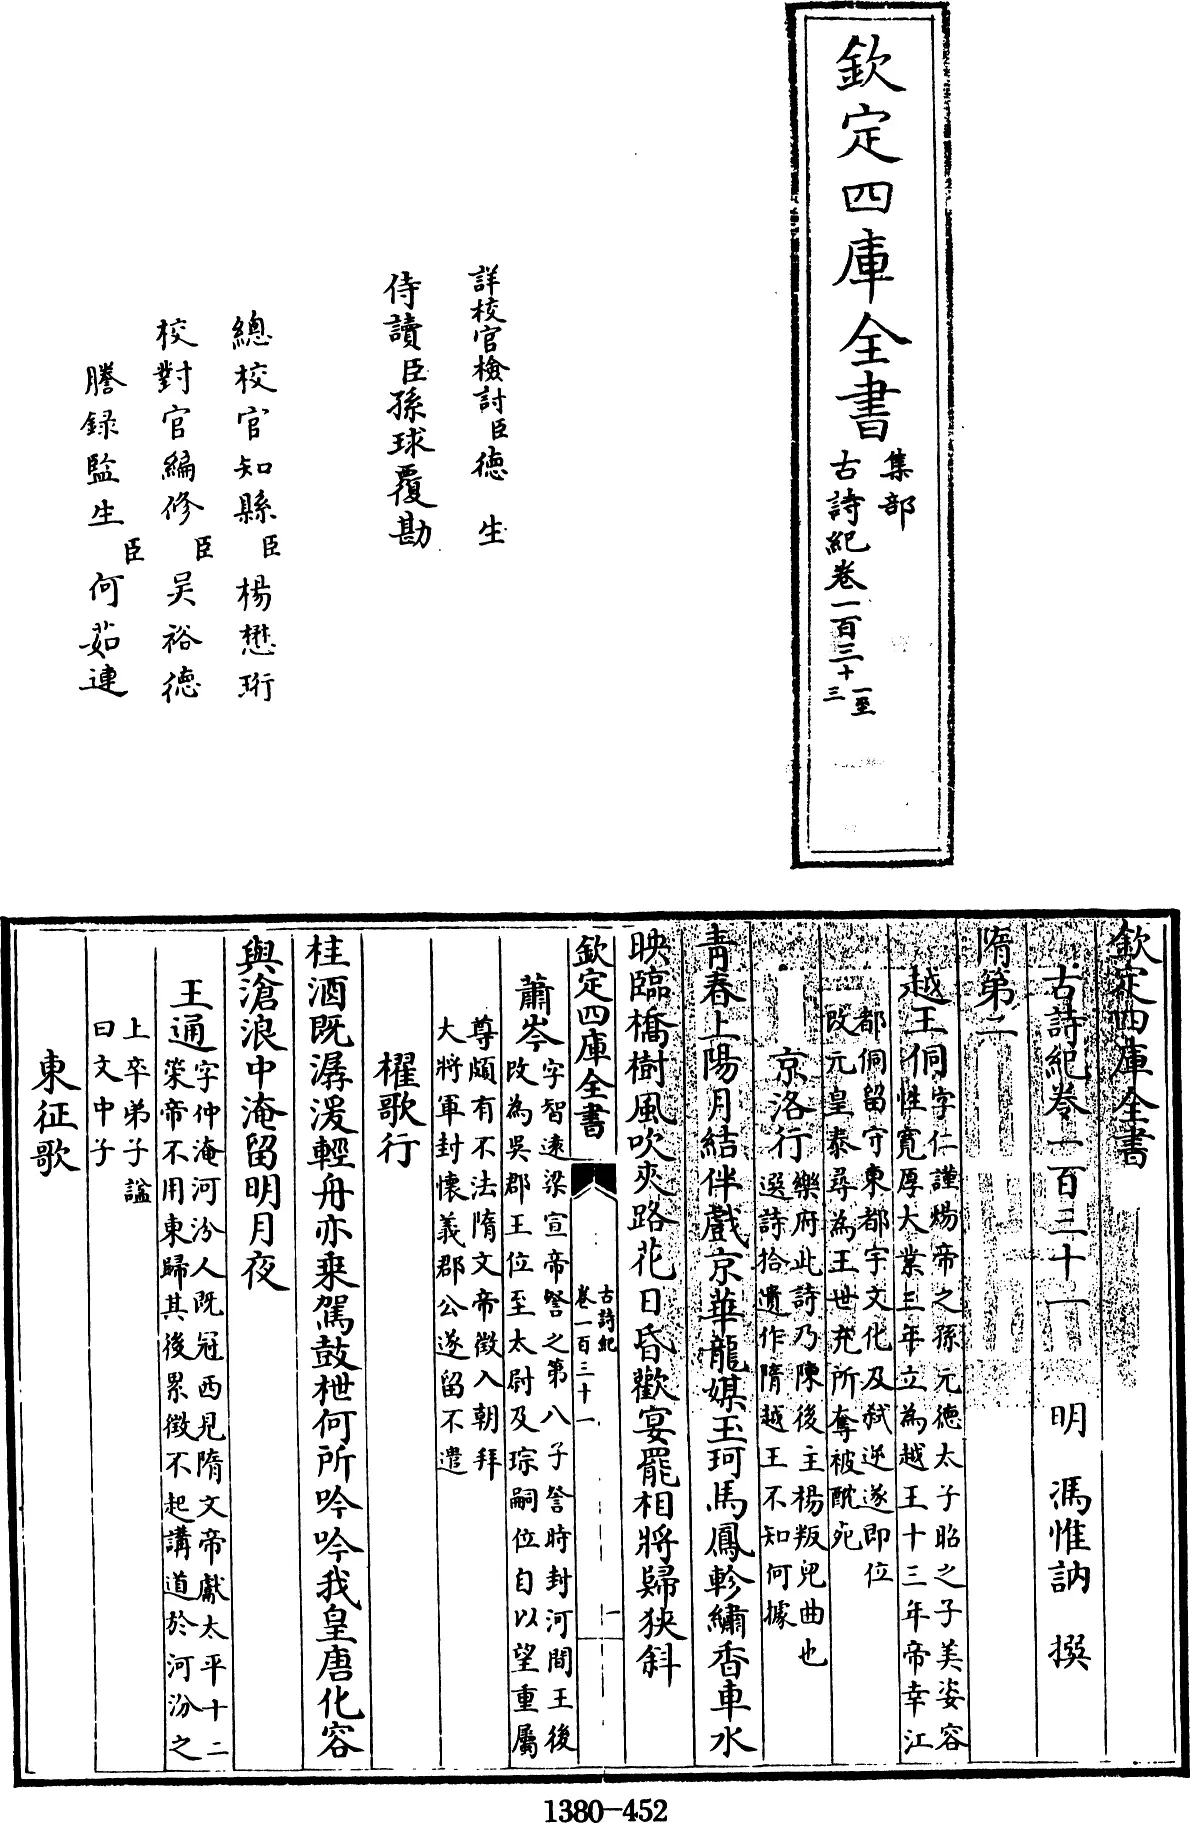 欽定四庫全書
集部
古詩紀卷一百三十一至
三
詳校官檢討臣德生
侍讀臣孫球覆勘
總校官知縣臣楊懋珩
校對官編修臣吳裕德
謄錄監生臣何茹連
欽定四庫全書
古詩紀卷一百三十一 明 馮惟訥 撰
隋第二
越王侗字仁謹煬帝之孫元德太子昭之子美姿容
性寬厚大業三年立為越王十三年帝幸江
都侗留守東都宇文化及弒逆遂即位
改元皇泰尋為王世充所奪被酖死
京洛行樂府此詩乃陳後主楊叛兒曲也
選詩拾遺作隋越王不知何據
青春上陽月結伴戲京華龍媒玉珂馬鳳軫繡香車水
映臨橋樹風吹夾路花日昏歡宴罷相將歸狹斜
欽定四庫全書
古詩紀
卷一百三十一
一
蕭岑字智遠梁宣帝詧之第八子詧時封河間王後
改為吳郡王位至太尉及琮嗣位自以望重屬
尊頗有不法隋文帝徵入朝拜
大將軍封懷義郡公遂留不遣
櫂歌行
桂酒既潺湲輕舟亦乗駕鼓枻何所吟吟我皇唐化容
與滄浪中淹留明月夜
王通字仲淹河汾人既冠西見隋文帝獻太平十二
策帝不用東歸其後累徵不起講道於河汾之
上卒弟子諡
曰文中子
東征歌
1380-452